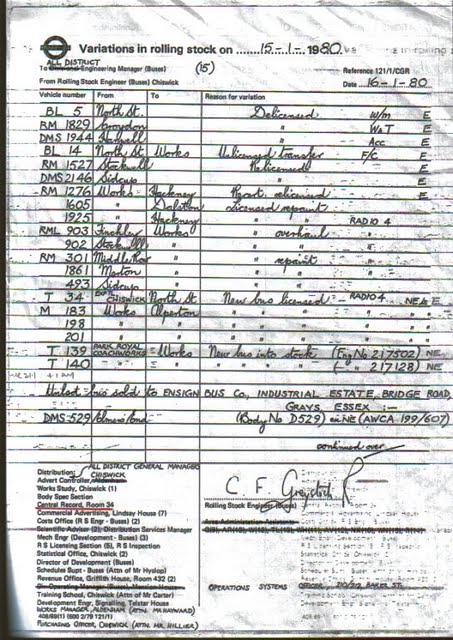 Variations in rolling stock on ........15-1-1980
ALL DISTRICT
To Divisional Engineering Manager (Buses) (15) Reference 121/1/CGR
From Rolling Stock Engineer (Buses) Chiswick Date 16-1-80
Vehicle number From To Reason for variation
BL 5 North St. Delicensed W/m E
RM 1829 Croydon " W&T E
DMS 1944 " Acc E
BL 14 North St Works Unlicensed transfer F/C E
RM 1527 Stockwell Relicensed E
DMS 2146 Sidcup " E
RM 1276 Works Hackney Repaint relicensed E
1605 " Dalston Licensed repaint
1925 " Hackney " " RADIO 4
RML 903 Finchley Works " overhaul "
902 Stockwell " " " "
RM 301 Middle Row " " repaint "
1861 Merton " " " "
493 Sidcup " " " "
T 34 EXPTL CHISWICK North St New bus licensed - RADIO 4 NE&E
M 183 Works Alperton " " " "
198 " " " " "
201 " " " " "
T 139 PARK ROYAL COACHWORKS Works New bus into stock (Eng No 217502) NE
T 140 " " " ( " 217128) NE
Unlicd bus sold to ENSIGN BUS Co, INDUSTRIAL ESTATE, BRIDGE ROAD,
GRAYS, ESSEX :-
DMS 529 (Body No D529) NE (AWCA 199/607)
continued over
ALL DISTRICT GENERAL MANAGERS
Distribution: CHISWICK
Advert Controller, Aldenham
Works Study, Chiswick (1)
Body Spec Section
Central Record, Room 34
Commercial Advertising, Lindsay House (7)
Costs Office (R S Engr - Buses) (2)
Scientific Advisor (2) Distribution Services Manager
Mech Engr (Development - Buses) (3)
R S Licensing Section (5), R S Inspection
Statistical Office, Chiswick (2)
Director of Development (Buses)
Schedules Supt - Buses (Attn of Mr Hyslop)
Revenue Office, Griffith House, Room 432 (2)
Training School, Chiswick (Attn of Mr Carter)
Development Engr, Signalling, Telstar House
WORKS MANAGER, ALDENHAM (ATTN. MR HAYWARD)
408/69/1 (500 2/79 121/1)
PURCHASING OFFICER, CHISWICK (ATTN. MR HILLIER)
Rolling Stock Engineer (Buses)
Area Administration Assistants
OPERATIONS SYSTEMS OFFICER, BAKER ST.